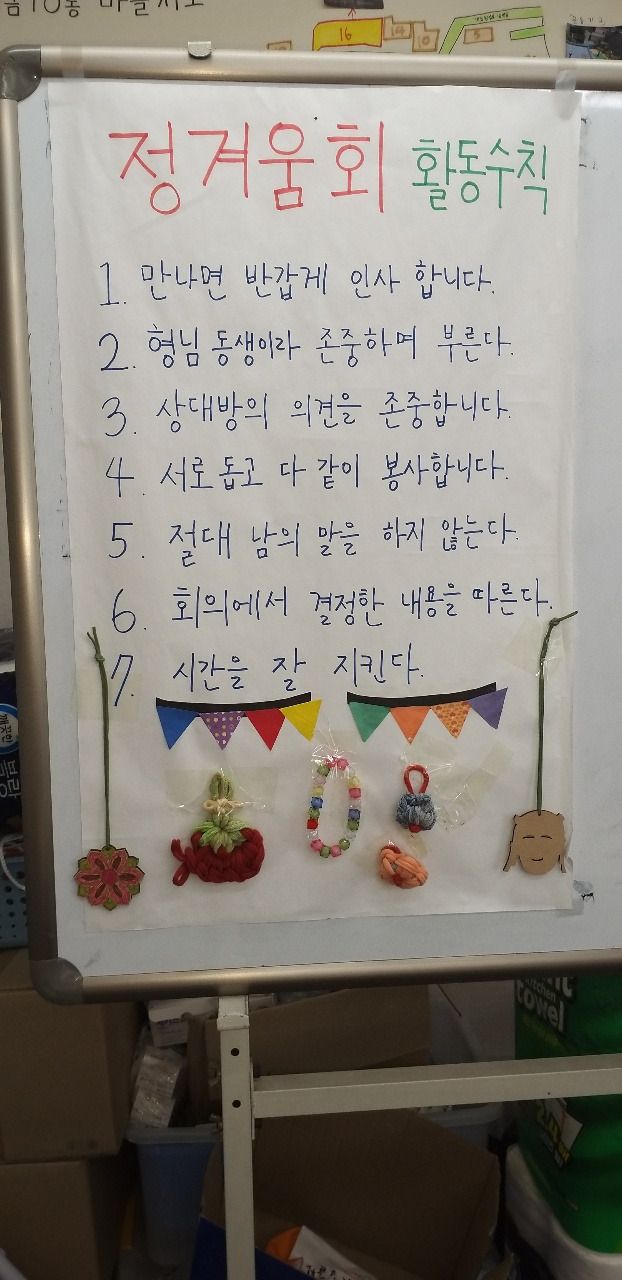 16
14
10
5
정겨움회 활동수칙
1. 만나면 반갑게 인사 합니다.
2. 형님 동생이라 존중하며 부른다.
3. 상대방의 의견을 존중합니다.
4. 서로 돕고 다 같이 봉사합니다.
5. 절대 남의 말을 하지 않는다.
6. 회의에서 결정한 내용을 따른다.
7. 시간을 잘 지킨다.
깨끗한
kitchen
towel